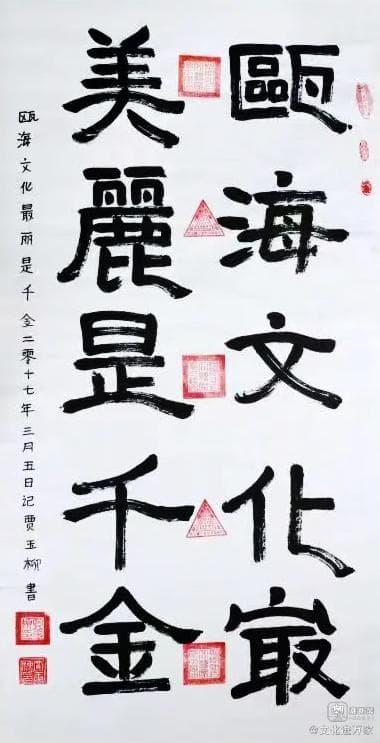 甌海文化最
美麗是千金
瓯海文化最丽是千金二零十七年三月五日记贾玉柳書
@文化进万家